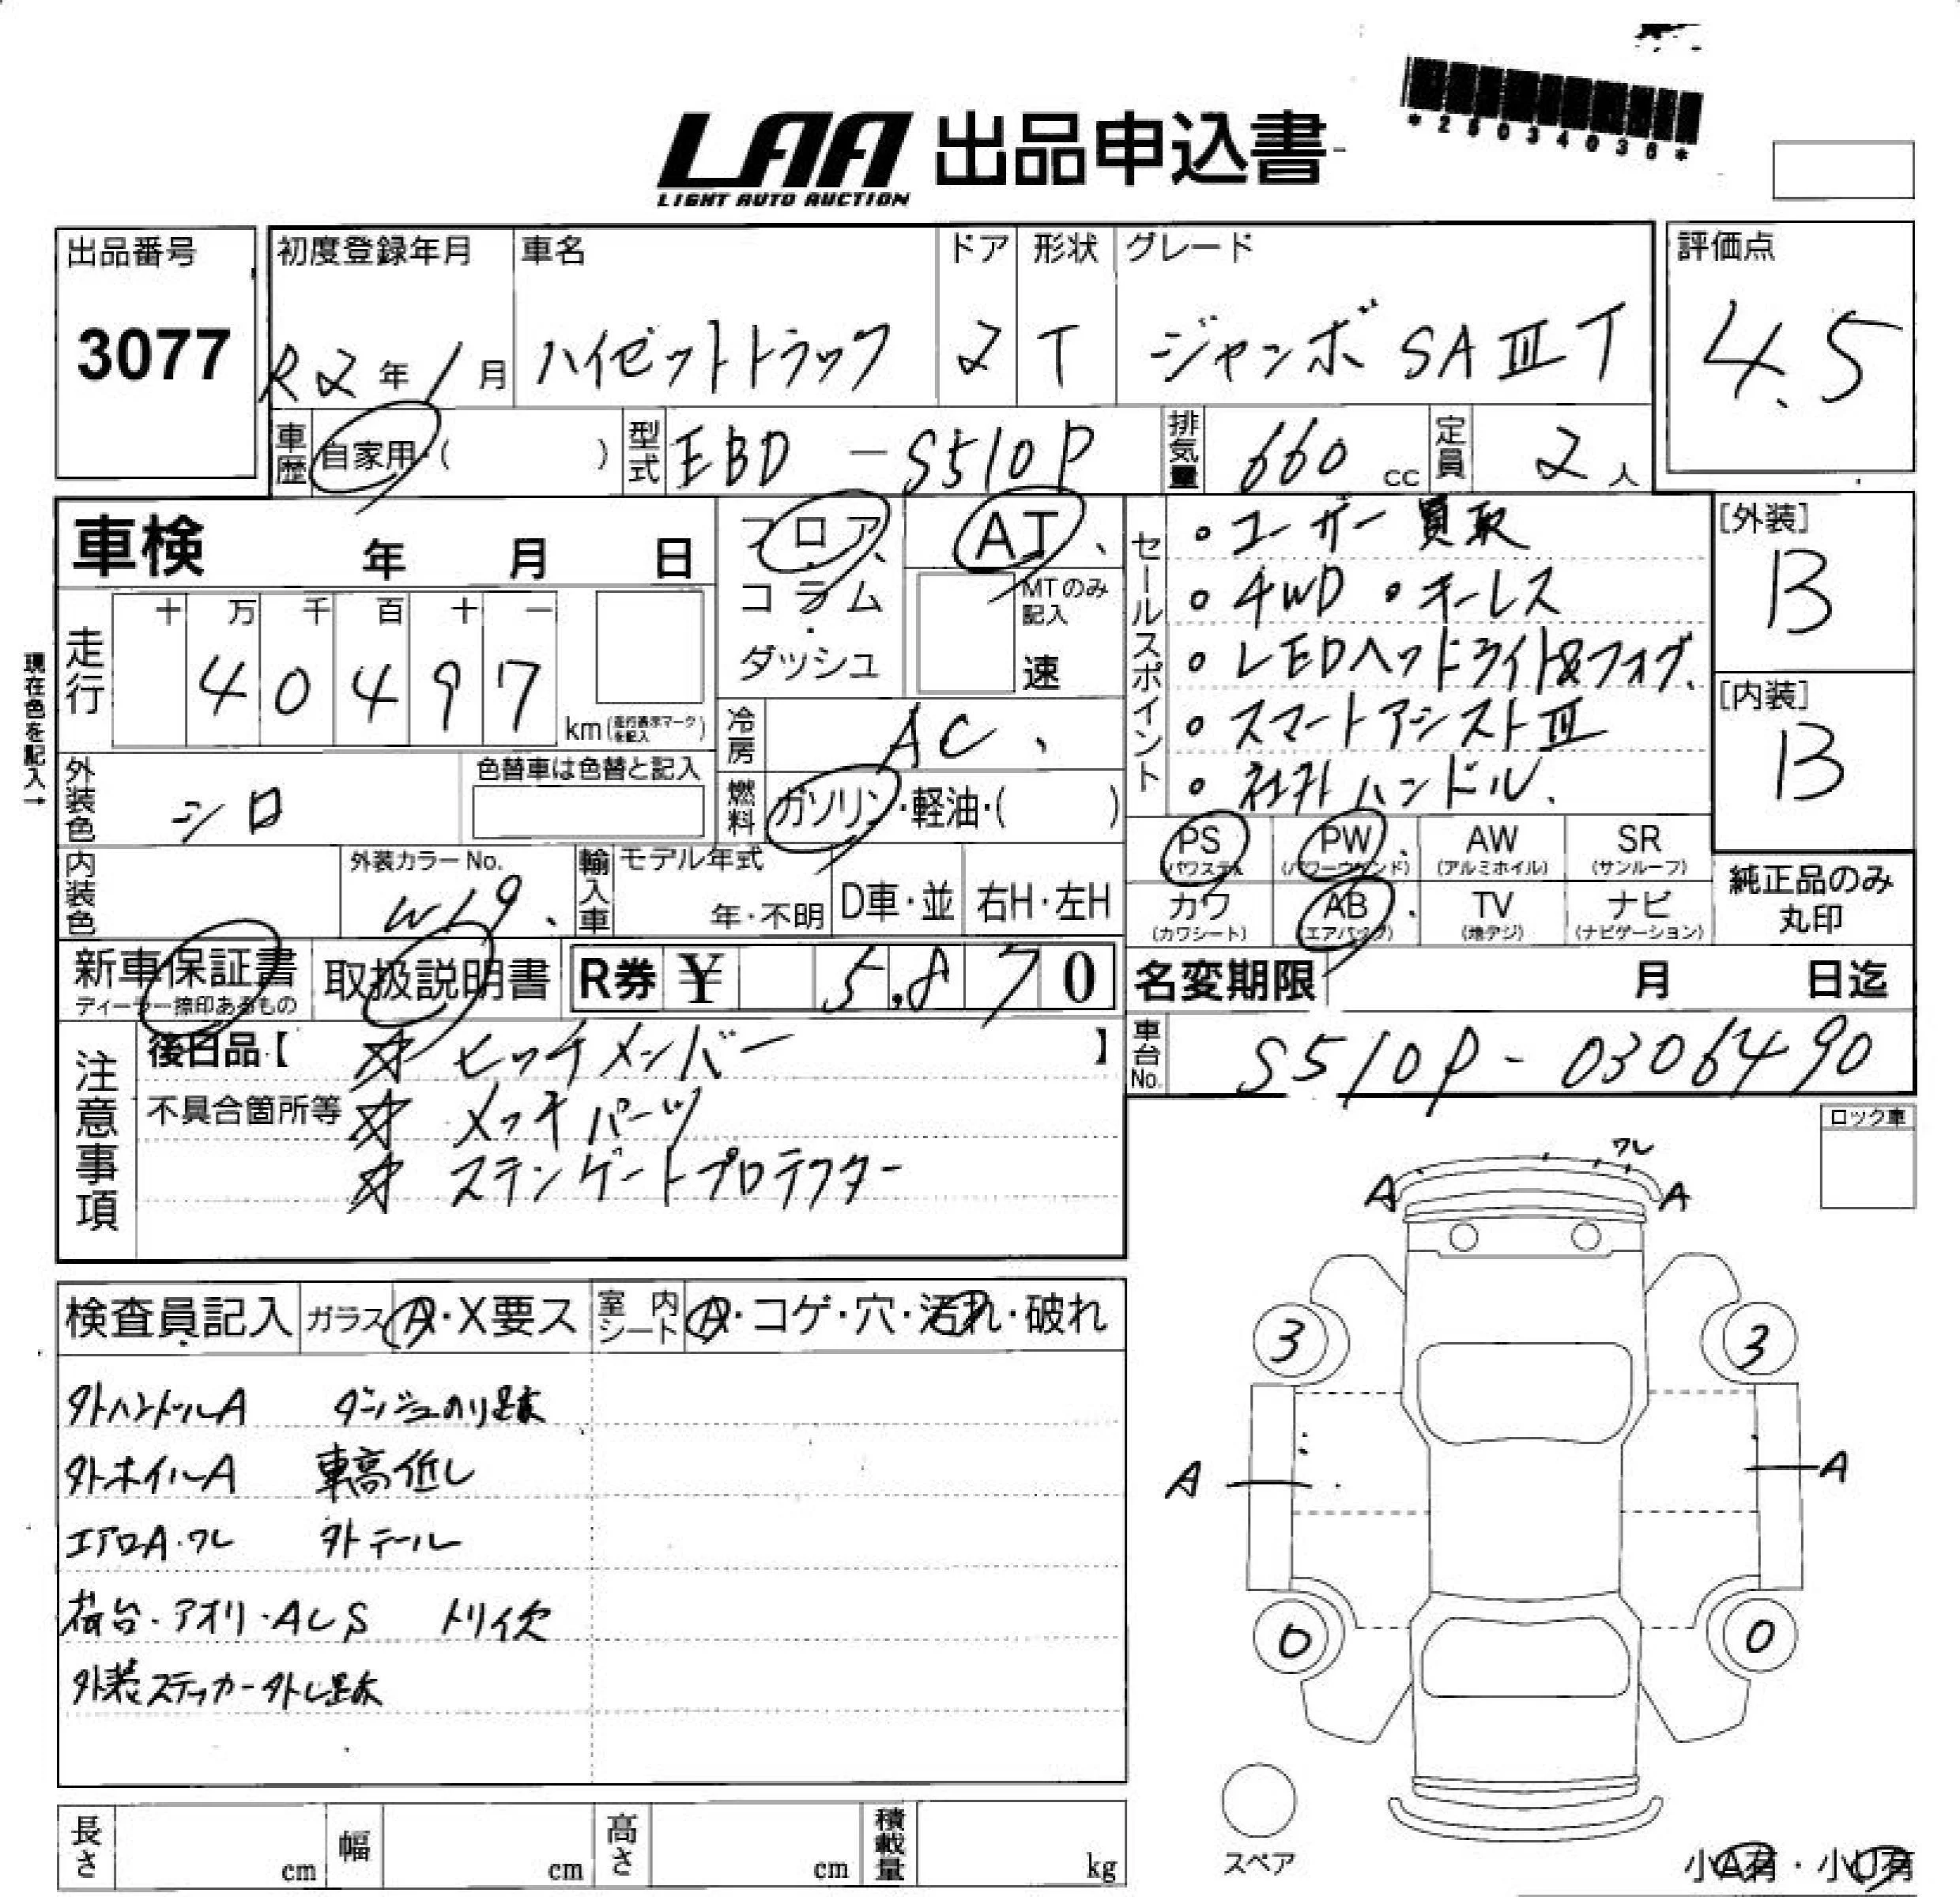 *25034036*
LAA 出品申込書
LIGHT AUTO AUCTION
出品番号 初度登録年月 車名 ドア 形状 グレード 評価点
3077 R2年1月 ハイゼットトラック 2 T ジャンボ SAⅢT 4.5
車歴 自家用・( ) 型式 EBD-S510P 排気量 660 cc 定員 2 人
車検 年 月 日
フロア・コラム・ダッシュ
AT、
MTのみ記入
速
セールスポイント
・ユーザー買取
・4WD ・キーレス
・LEDヘッドライト&フォグ、
・スマートアシストⅢ
・社外ハンドル、
[外装]
B
[内装]
B
現在色を記入→
走行
十 万 千 百 十 一
4 0 4 9 7
km(走行表示マークを記入)
冷房 AC、
外装色 シロ 色替車は色替と記入
燃料 ガソリン・軽油・( )
内装色 外装カラーNo. W19、 輸入車 モデル年式 年・不明 D車・並 右H・左H
PS (パワステ) PW (パワーウインド) AW (アルミホイル) SR (サンルーフ)
カワ (カワシート) AB (エアバッグ) TV (地デジ) ナビ (ナビゲーション)
純正品のみ丸印
新車保証書 ディーラー捺印あるもの 取扱説明書 R券 ¥ 5,870
名変期限 月 日迄
車台No. S510P-0306490
注意事項
後日品【 ☆ ヒッチメンバー 】
不具合箇所等 ☆ メッキパーツ
☆ ステンゲートプロテクター
ロック車
検査員記入 ガラス A・X要ス 室内シート A・コゲ・穴・汚れ・破れ
外ハンドルA ダッシュのり跡
外ホイルA 車高低し
エアロA・ワレ 外テール
荷台・アオリ・AUS トリイ欠
外装ステッカー外し跡
ワレ
A A
3 3
A A
0 0
スペア
小A有・小U有
長さ cm 幅 cm 高さ cm 積載量 kg